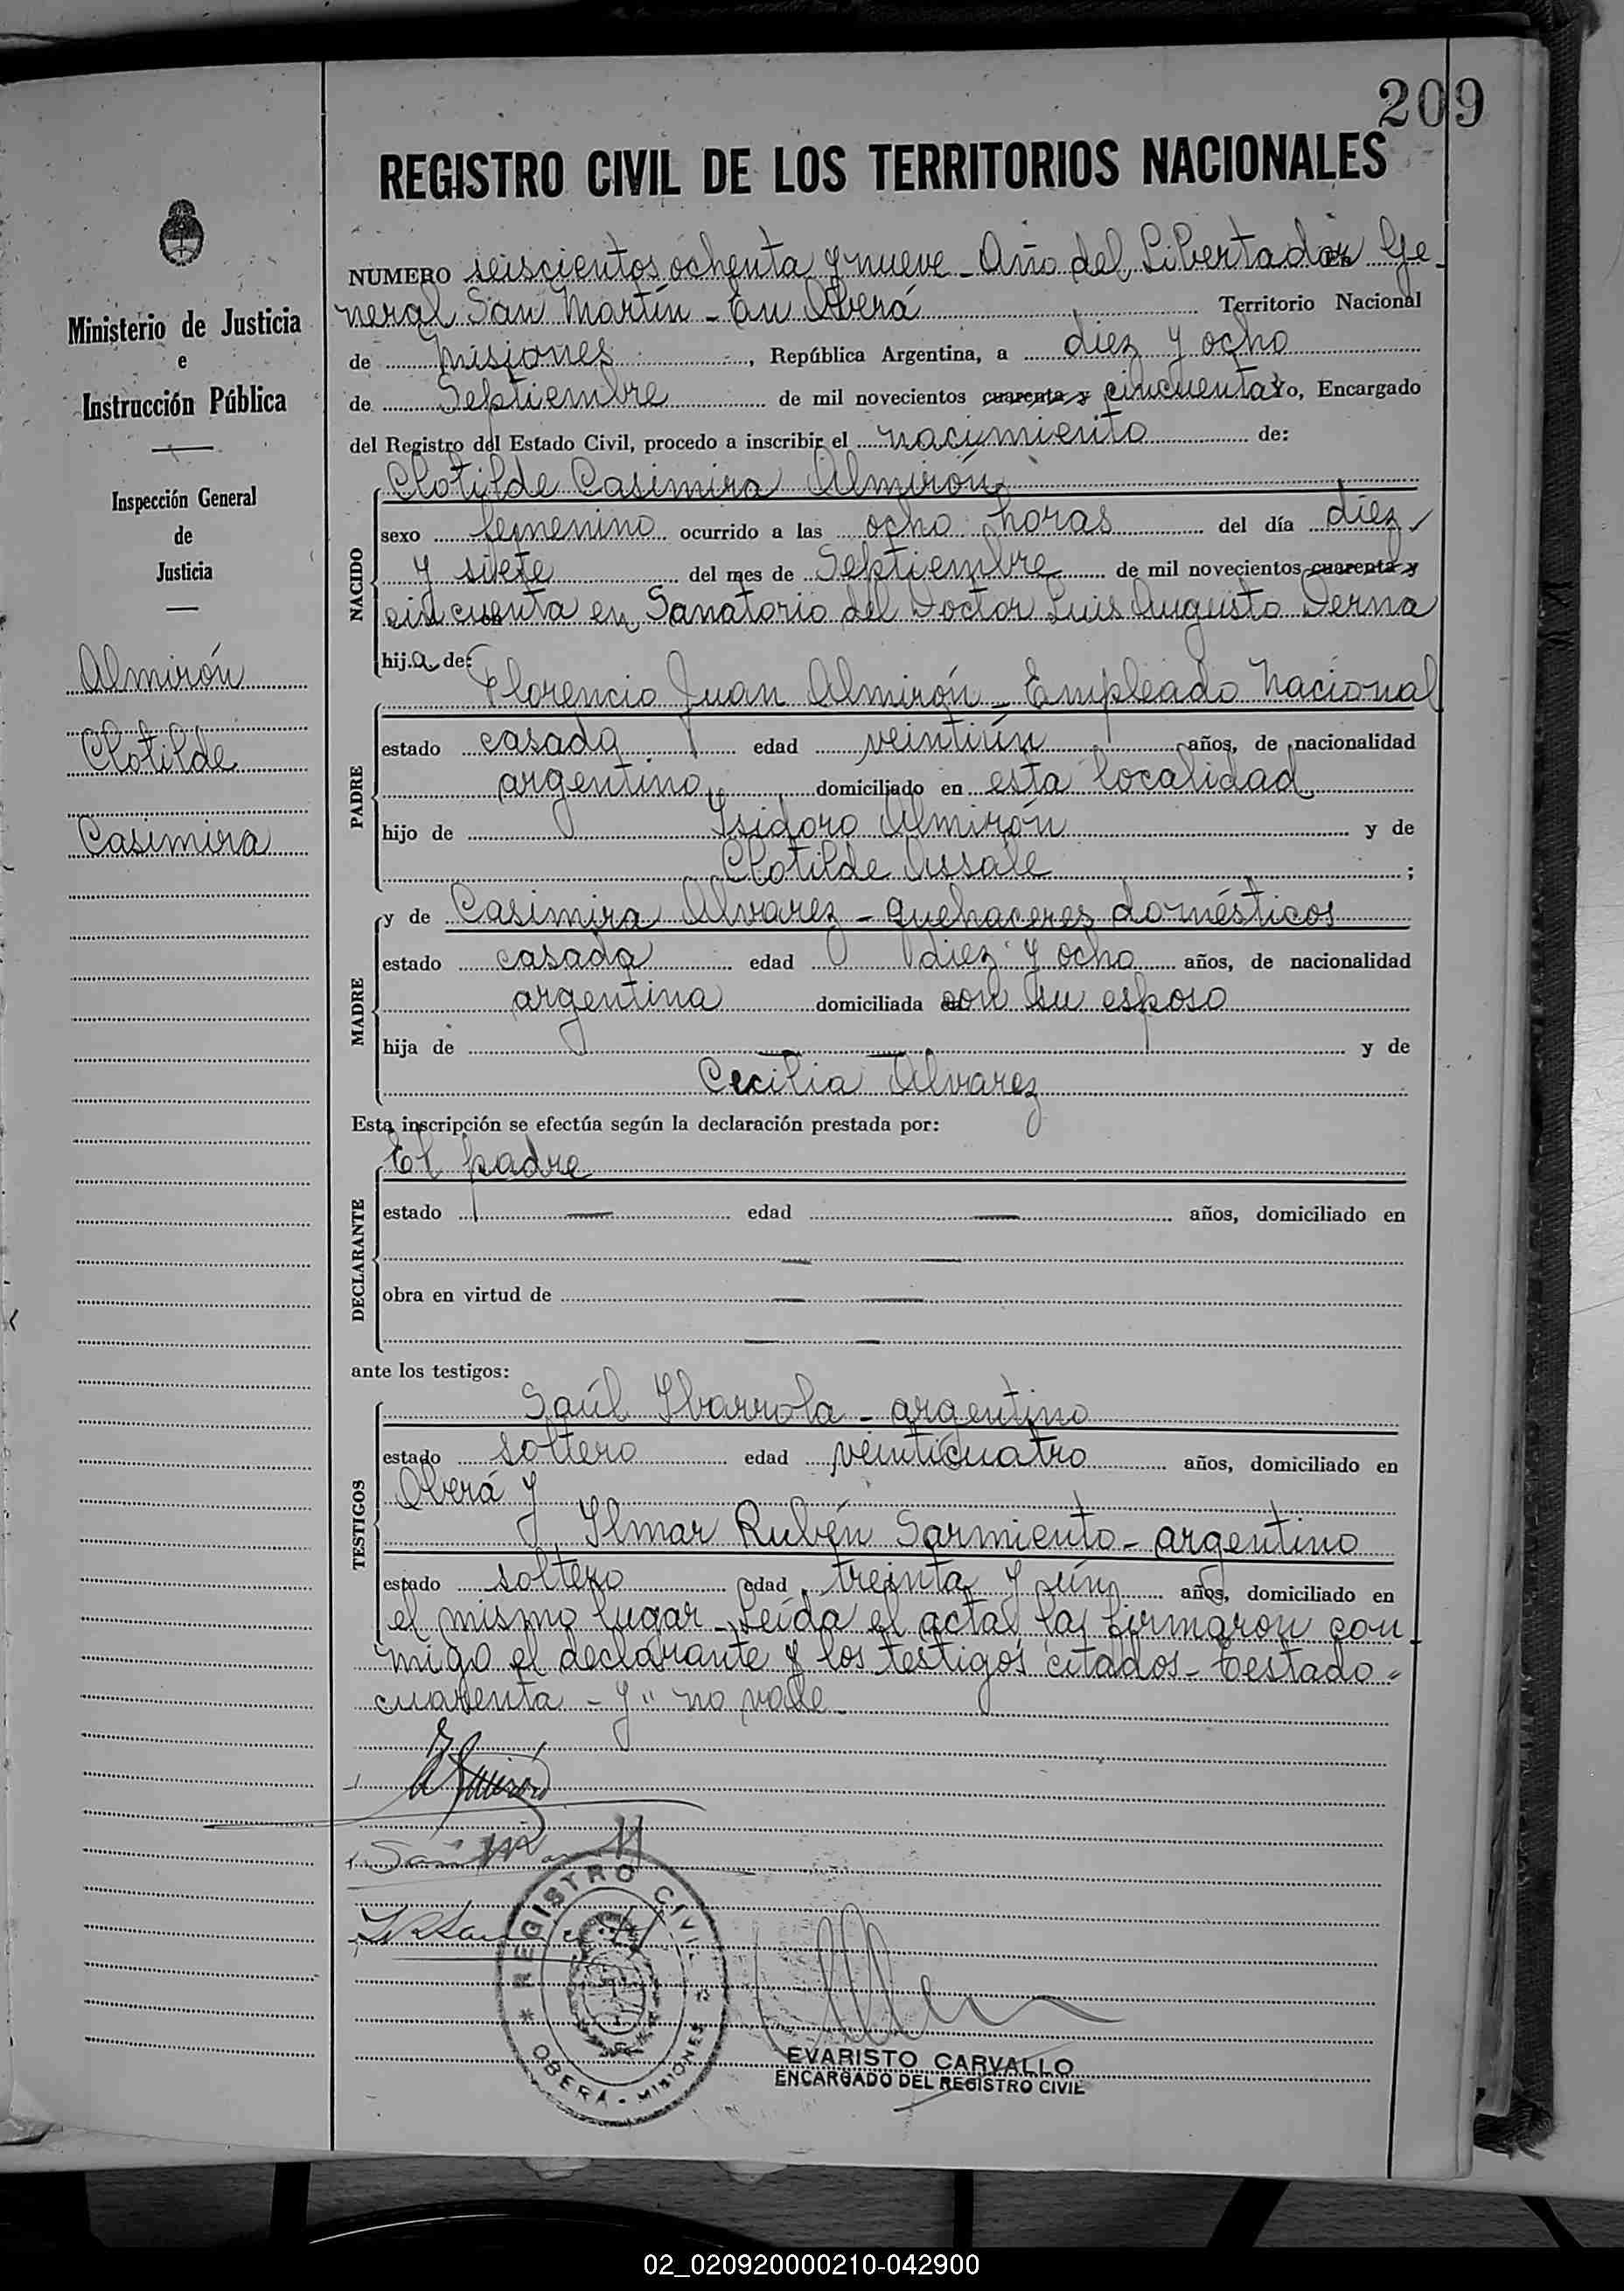 209
REGISTRO CIVIL DE LOS TERRITORIOS NACIONALES
Ministerio de Justicia
e
Instrucción Pública
Inspección General
de
Justicia
Almirón
Clotilde
Casimira
NUMERO seiscientos ochenta y nueve - Año del Libertador Ge-
neral San Martín - En Oberá Territorio Nacional
de Misiones, República Argentina, a diez y ocho
de Septiembre de mil novecientos cuarenta y cincuenta Yo, Encargado
del Registro del Estado Civil, procedo a inscribir el nacimiento de:
NACIDO
Clotilde Casimira Almirón
sexo femenino ocurrido a las ocho horas del día diez
y siete del mes de Septiembre de mil novecientos cuarenta y
cincuenta en Sanatorio del Doctor Luis Augusto Derna
hija de:
PADRE
Florencio Juan Almirón - Empleado Nacional
estado casado edad veintiún años, de nacionalidad
argentino domiciliado en esta localidad
hijo de Isidoro Almirón y de
Clotilde Assale ;
MADRE
y de Casimira Alvarez - quehaceres domésticos
estado casada edad diez y ocho años, de nacionalidad
argentina domiciliada con su esposo
hija de — — y de
Cecilia Alvarez
Esta inscripción se efectúa según la declaración prestada por:
DECLARANTE
El padre
estado — edad — años, domiciliado en
— —
obra en virtud de — —
— —
ante los testigos:
TESTIGOS
Saúl Ibarrola - argentino
estado soltero edad veinticuatro años, domiciliado en
Oberá y
Ilmar Rubén Sarmiento - argentino
estado soltero edad treinta y ún años, domiciliado en
el mismo lugar - Leída el acta, la firmaron con-
migo el declarante y los testigos citados - Testado "
cuarenta - y" no vale
REGISTRO CIVIL
OBERÁ - MISIONES
EVARISTO CARVALLO
ENCARGADO DEL REGISTRO CIVIL
02_020920000210-042900